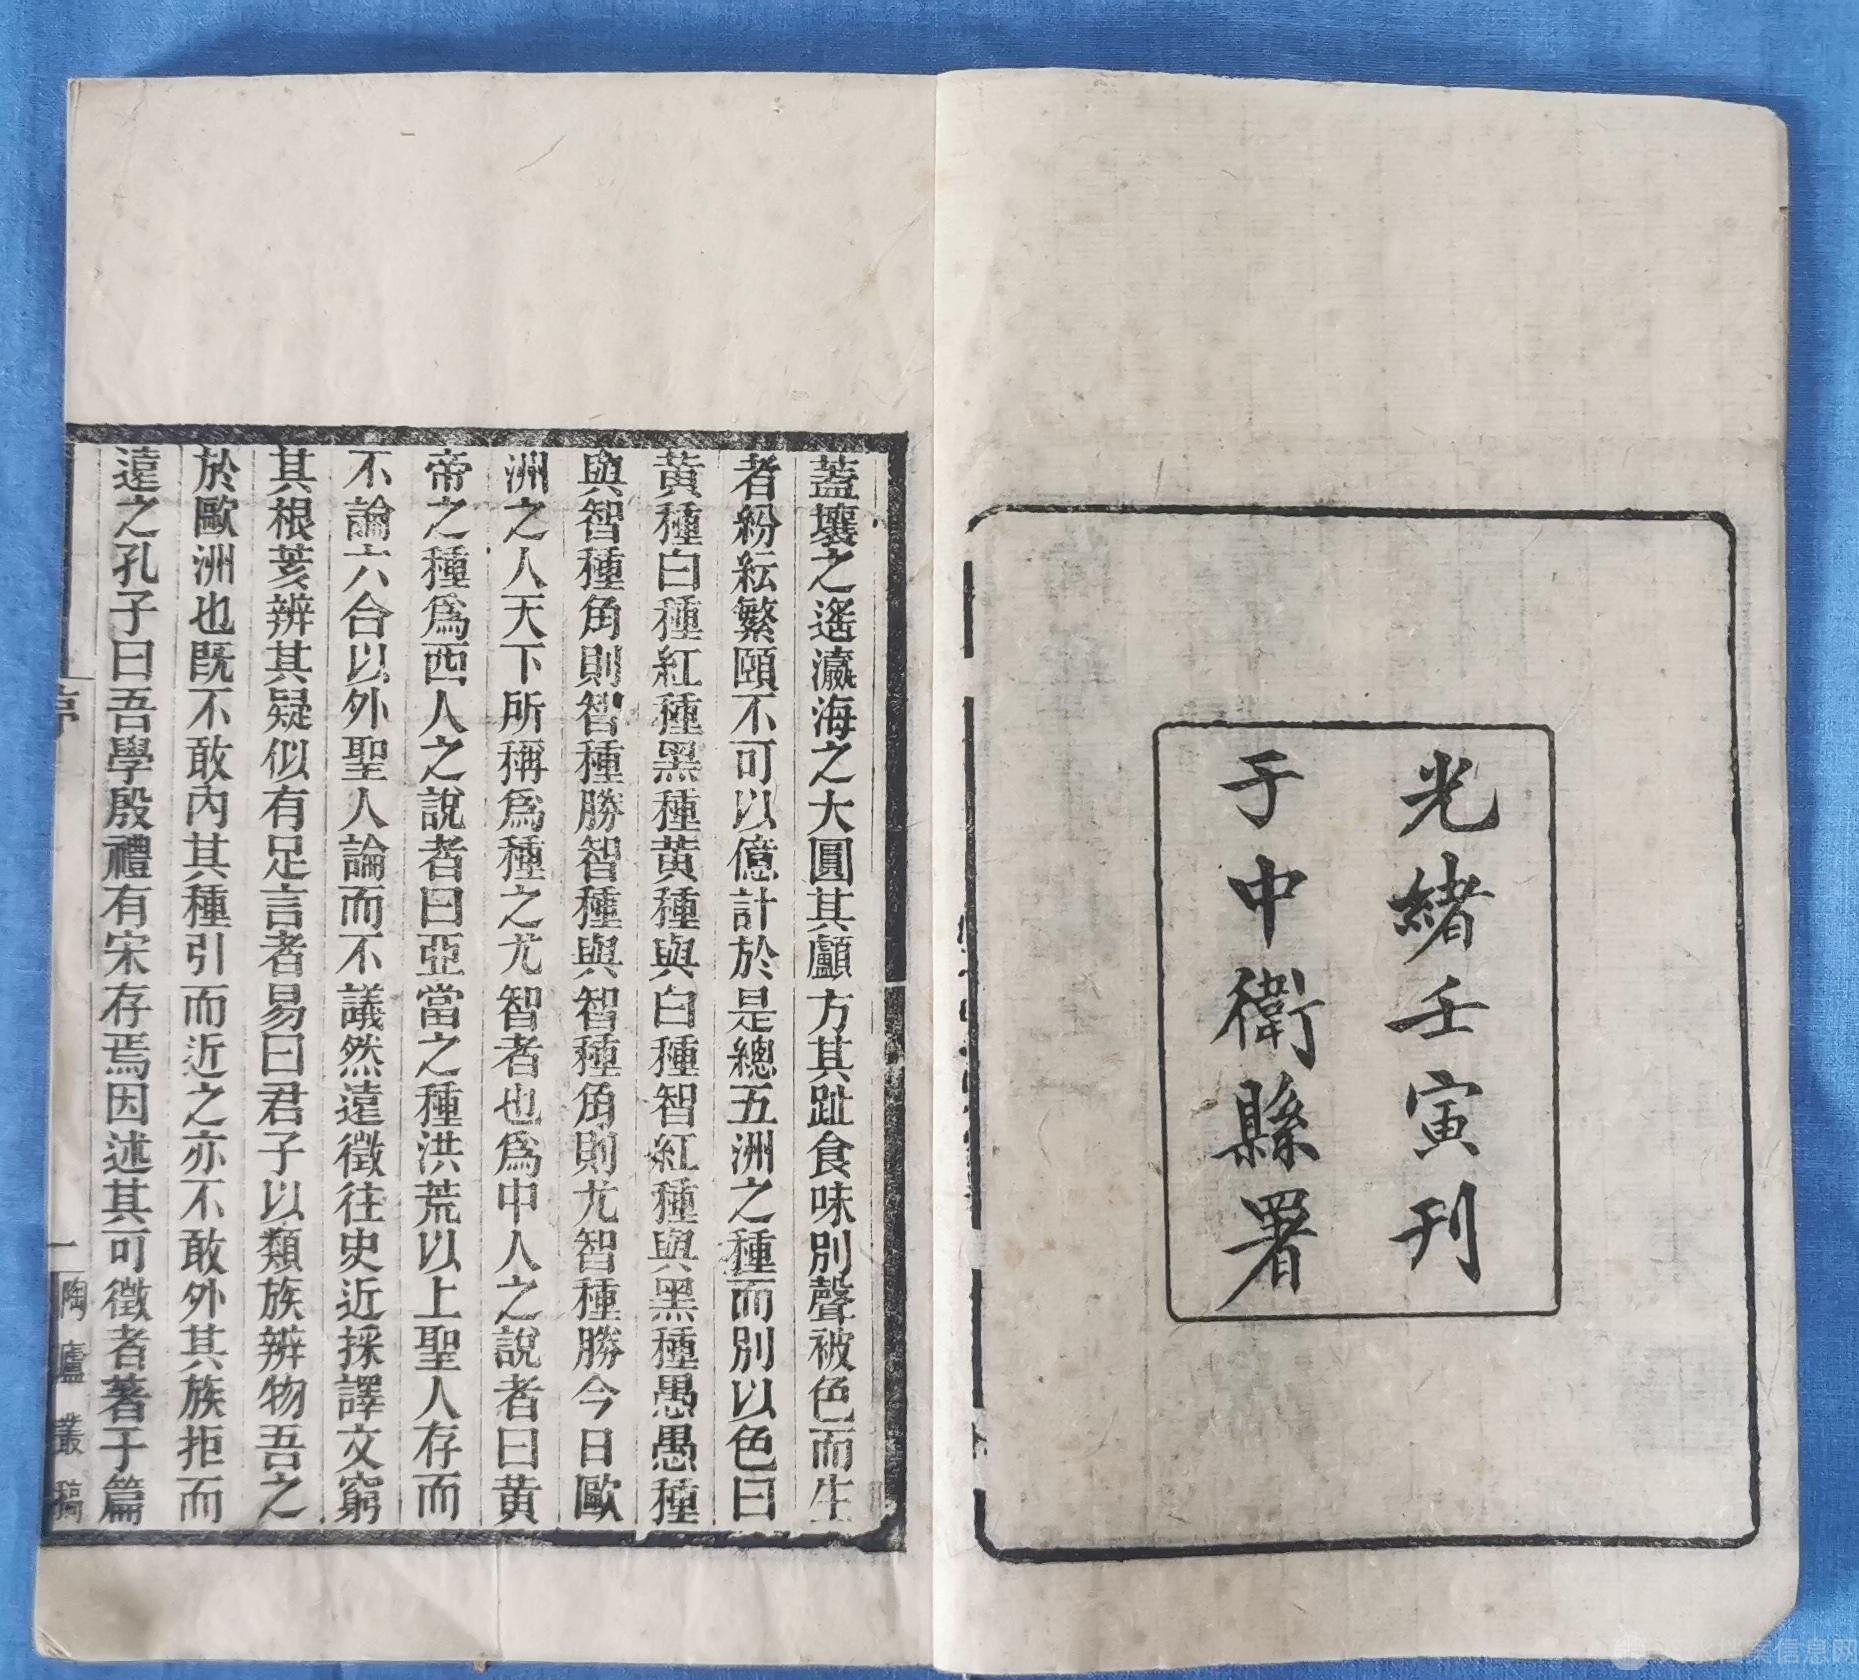 光緒壬寅刊
于中衛縣署
蓋壤之遙瀛海之大圓其顱方其趾食味別聲被色而生
者紛紜繁賾不可以億計於是總五洲之種而別以色曰
黃種白種紅種黑種黃種與白種智紅種與黑種愚愚種
與智種角則智種勝智種與智種角則尤智種勝今日歐
洲之人天下所稱爲種之尤智者也爲中人之說者曰黃
帝之種爲西人之說者曰亞當之種洪荒以上聖人存而
不論六合以外聖人論而不議然遠徵往史近採譯文窮
其根荄辨其疑似有足言者易曰君子以類族辨物吾之
於歐洲也既不敢內其種引而近之亦不敢外其族拒而
遠之孔子曰吾學殷禮有宋存焉因述其可徵者著于篇
序
一
陶廬叢稿